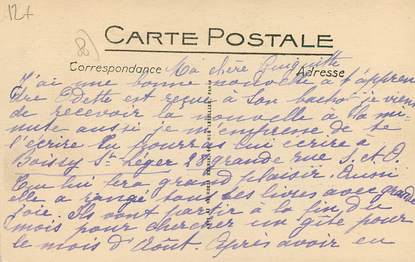 12+
CARTE POSTALE
Correspondance
Adresse
Ma chère Guiguitte
J'ai une bonne nouvelle à t'appren
dre Odette est reçue à son bachot je viens
de recevoir la nouvelle à la mi-
nute aussi je m'empresse de te
l'écrire tu pourras lui écrire à
Boissy St Léger 28 grande rue S. et O.
Que lui fera grand plaisir. Quoi
elle a rangé tous ses livres avec grande
joie. Ils vont partir à la fin du
mois pour chercher un gîte pour
le mois d'Août. Après avoir eu